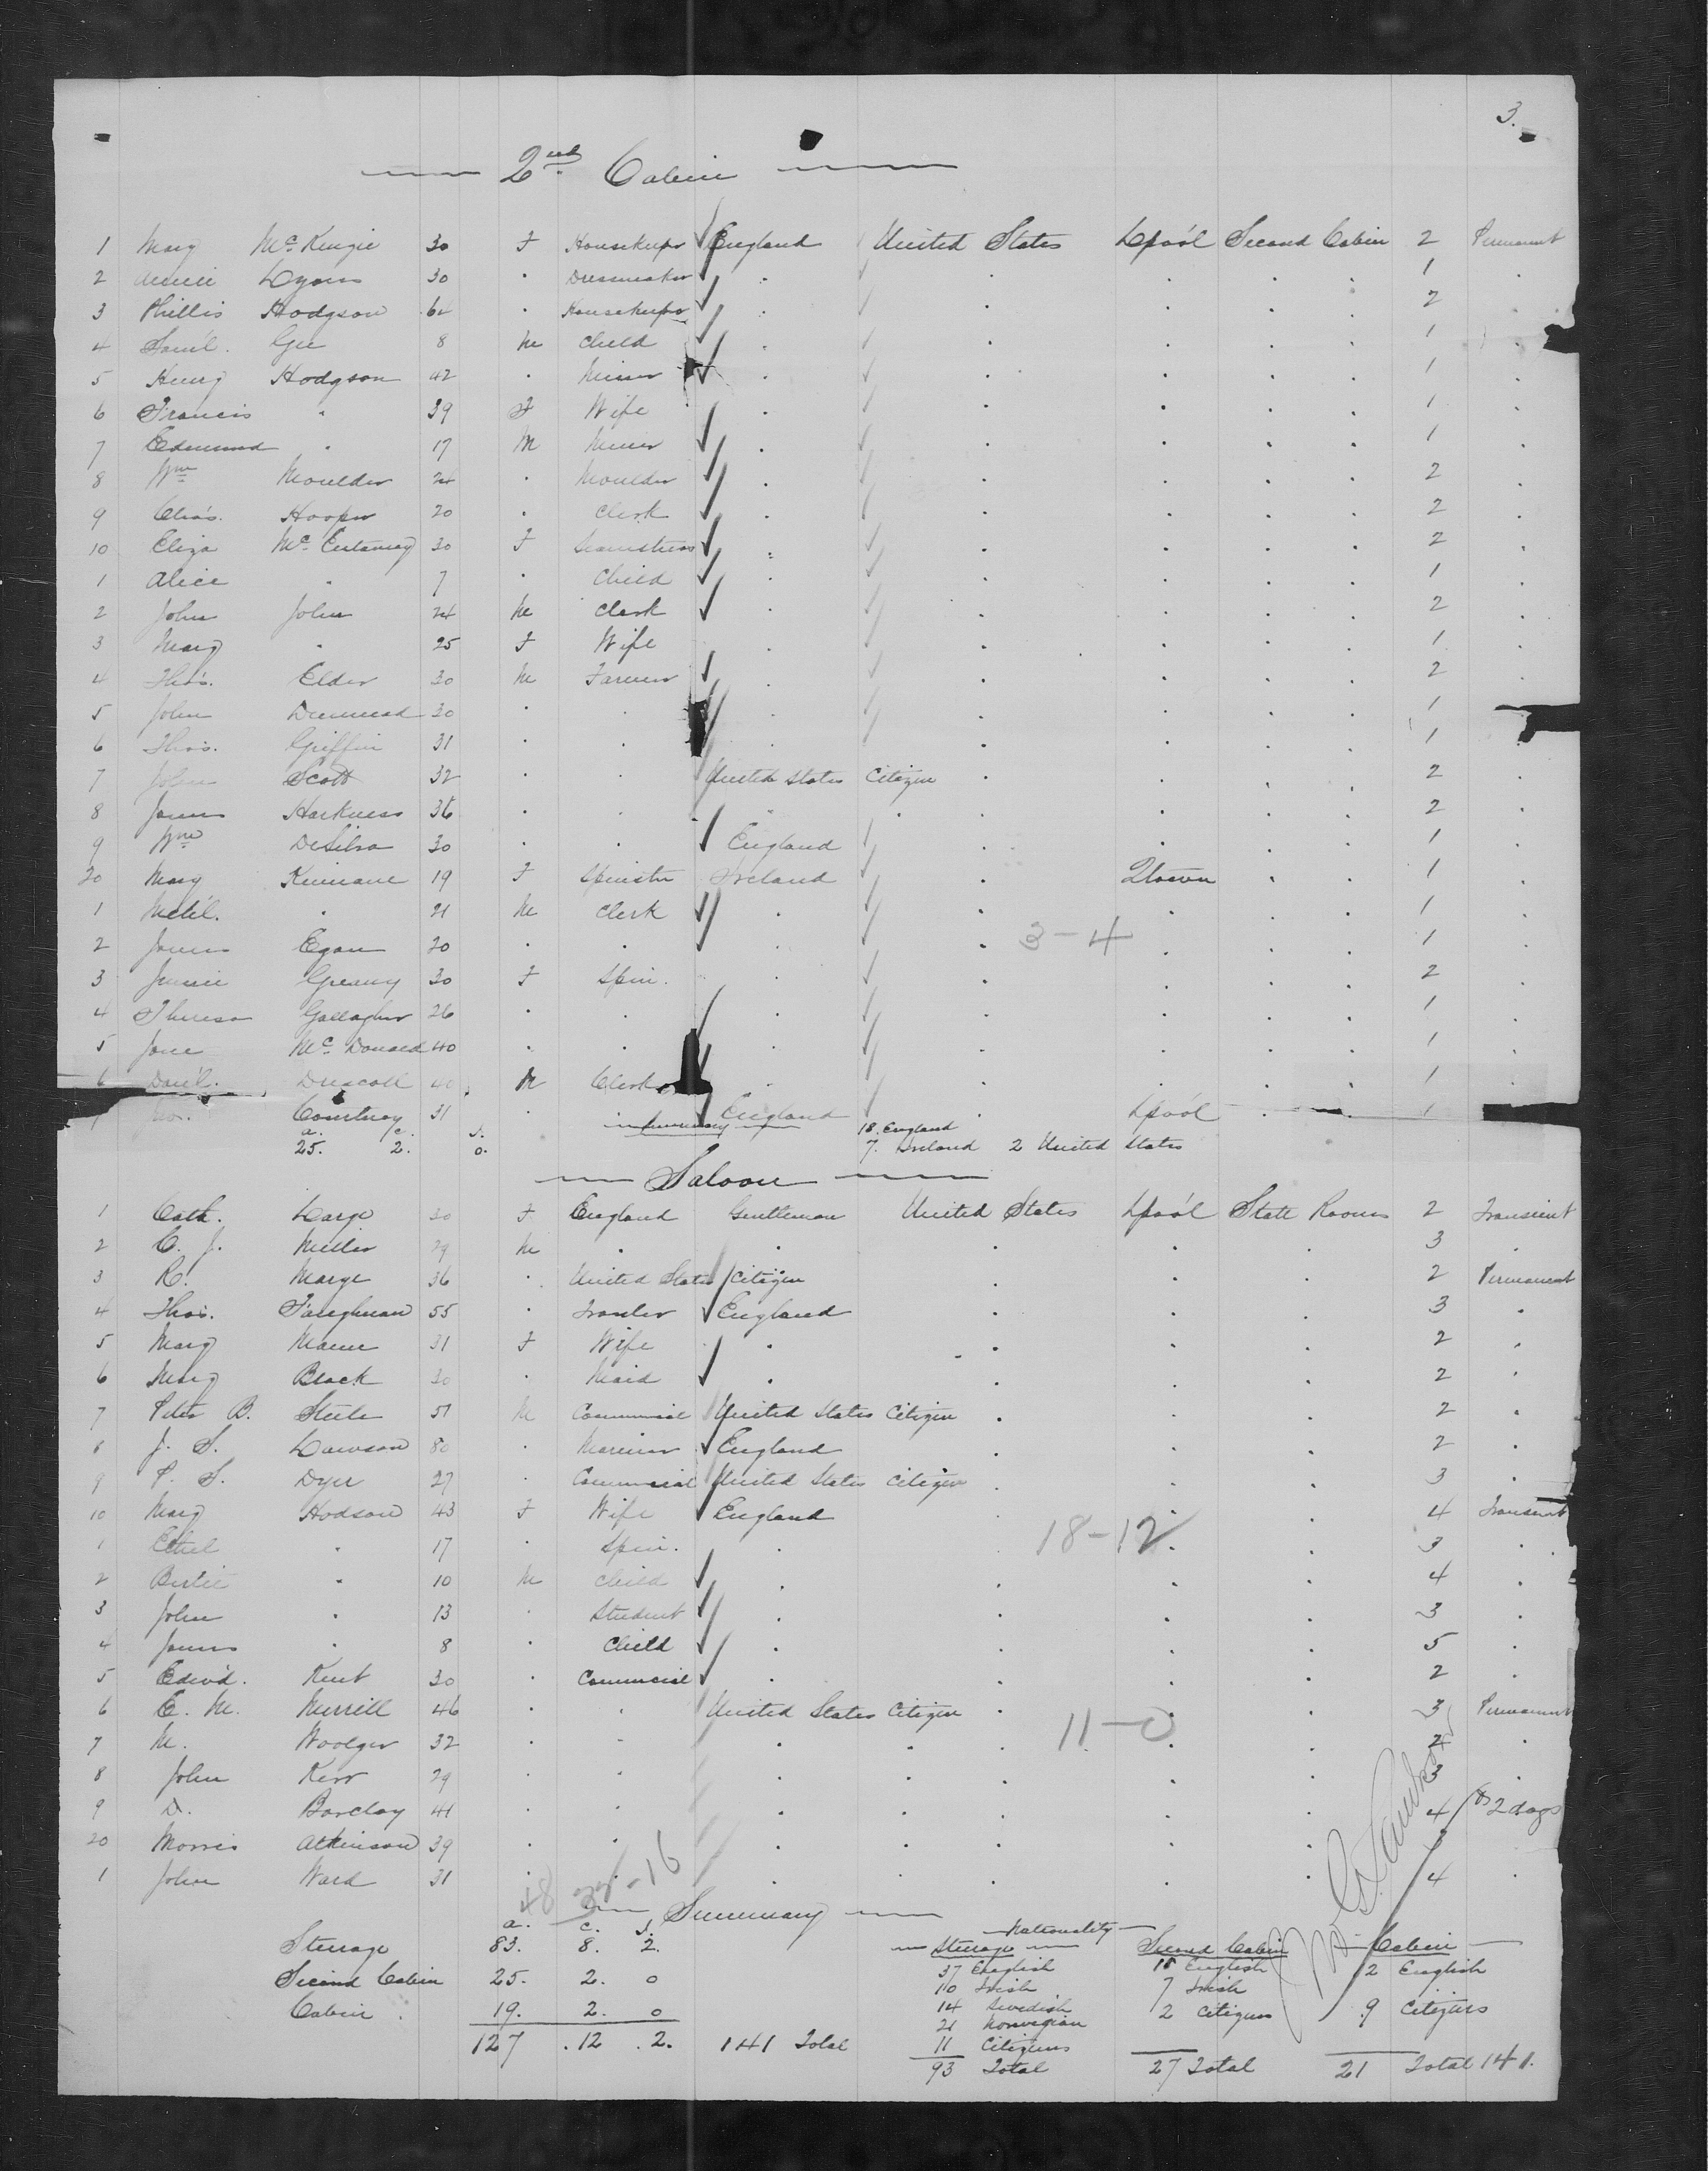 3.
2nd Cabin
1 Mary McKenzie 30 F Housekeeper England United States Lpool Second Cabin 2 Permanent
2 Lyons 30 " Dressmaker . . . . . 1 .
3 Phillis Hodgson 64 . Housekeeper . . . . . 2
4 Saml. Gee 8 M Child . . . . . 1 .
5 Henry Hodgson 42 . Miner . . . . . 1 .
6 Francis " 39 F Wife . . . . . 1 .
7 Edmund " 17 M Miner . . . . . 1 .
8 Wm Moulder 24 . Moulder . . . . . 2 .
9 Chas. Hooper 20 . Clerk . . . . . 2 .
10 Eliza 30 F Seamstress . . . . . 2 .
1 Alice " 7 . Child . . . . . 1 .
2 John John 24 M Clerk . . . . . 2 .
3 Mary " 25 F Wife . . . . . 1 .
4 Thos. Elder 30 M Farmer . . . . . 2 .
5 John 30 . . . . . . 1 .
6 Thos. Griffin 31 . . . . . . 1
7 John Scott 32 . . United States Citizen . . . . 2 .
8 James Harkness 36 . . " . . . . . 2 .
9 Wm DeSilva 30 . . England . . . . 1 .
20 Mary Kinnane 19 F Spinster Ireland . Qtown . . 1 .
1 Michl. " 21 M Clerk . . . . . 1 .
2 James Egan 20 . . . . 3-4 . . . 1 .
3 Greany 30 F Spin. . . . . . 2 .
4 Theresa Gallagher 26 . . . . . . 1 .
5 Jane McDonald 40 . . . . . . 1 .
6 Danl. Driscoll 40 M Clerk . . . . . 1 .
Courtney 31 . England . Lpool . . 1
a. c. i. in Summary 18. England
25. 2. 0. 7. Ireland 2 United States
Saloon
1 Cath. Large 30 F England Gentleman United States Lpool State Rooms 2 Transient
2 C. J. Miller 29 M . . . . . 3 .
3 R. Marye 36 . United States Citizen . . . 2 Permanent
4 Thos. Faughnan 55 . England . . . 3 .
5 Mary 31 F Wife . . . . 2 .
6 Mary Black 30 . Maid . . . . 2 .
7 Peter B. Steele 51 M Commercial United States Citizen . . . 2 .
8 J. S. Lawson 80 . Mariner England . . . 2 .
9 P. S. Dyer 27 . Commercial United States Citizen . . . 3 .
10 Mary Hodson 43 F Wife England . . . 4 Transient
1 Ethel " 17 . Spin. . 18-12 . . 3 .
2 Bertie " 10 M Child . . . . 4 .
3 John " 13 . Student . . . . 3 .
4 James " 8 . Child . . . . 5 .
5 Edwd. Kent 30 . Commercial . . . . 2 .
6 E. M. Merrill 46 . . United States Citizen . . . 3 Permanent
7 M. Woolger 32 . . . . . 11-0 . . 2 .
8 John Kerr 29 . . . . . . . 3 .
9 D. Barclay 41 . . . . . . . 4 2 days
20 Morris Atkinson 39 . . . . . . . 3
1 John Ward 31 . . . . . . . 4 .
48 32-16
Summary
a. c. i. Nationality
Steerage 83. 8. 2. Steerage Second Cabin Cabin
37 English 18 English 2 English
Second Cabin 25. 2. 0 10 Irish 7 Irish
Cabin 19. 2. 0 14 Swedish 2 Citizens 9 Citizens
21 Norwegian
127. 12. 2. 141 Total 11 Citizens
93 Total 27 Total 21 Total 141.